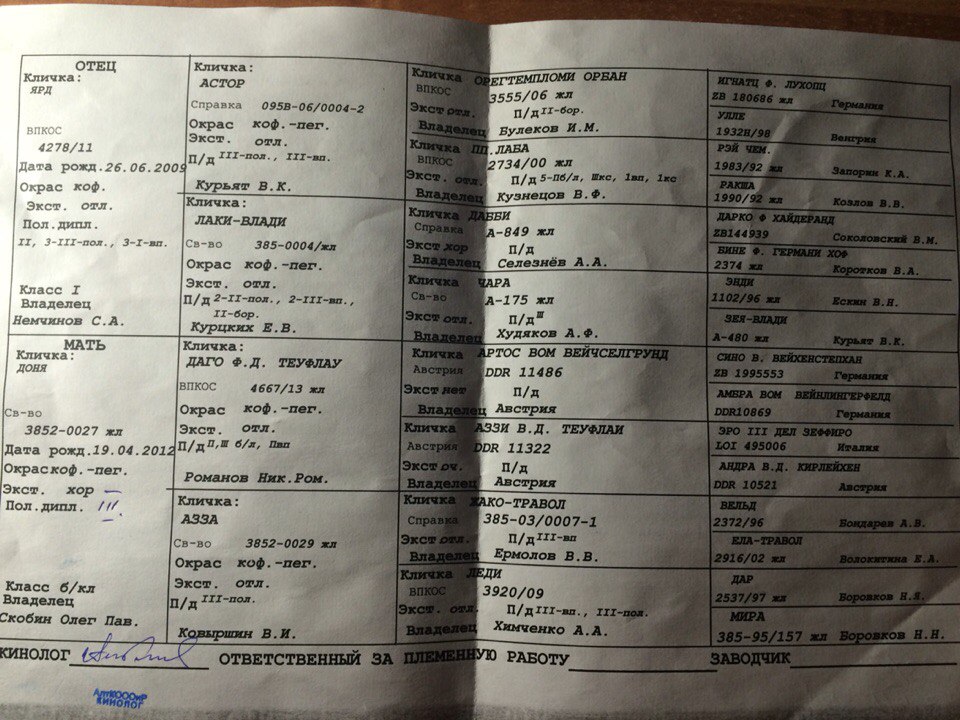 ОТЕЦ
Кличка:
ЯРД
ВПКОС
4278/11
Дата рожд.26.06.2009
Окрас коф.
Экст. отл.
Пол.дипл.
II, 3-III-пол., 3-I-вп.
Класс I
Владелец
Немчинов С.А.
МАТЬ
Кличка:
ДОНЯ
Св-во
3852-0027 жл
Дата рожд.19.04.2012
Окрас коф.-пег.
Экст. хор
Пол.дипл. III.
Класс б/кл
Владелец
Скобин Олег Пав.
Кличка:
АСТОР
Справка 095В-06/0004-2
Окрас коф.-пег.
Экст. отл.
П/д III-пол., III-вп.
Курьят В.К.
Кличка:
ЛАКИ-ВЛАДИ
Св-во 385-0004/жл
Окрас коф.-пег.
Экст. отл.
П/д 2-II-пол., 2-III-вп.,
II-бор.
Курцких Е.В.
Кличка:
ДАГО Ф.Д. ТЕУФЛАУ
ВПКОС 4667/13 жл
Окрас коф.-пег.
Экст. отл.
П/д П,Ш б/л, Пвп
Романов Ник.Ром.
Кличка:
АЗЗА
Св-во 3852-0029 жл
Окрас коф.-пег.
Экст. отл.
П/д III-пол.
Ковыршин В.И.
Кличка ОРЕГТЕМПЛОМИ ОРБАН
ВПКОС 3555/06 жл
Экст отл. П/д II-бор.
Владелец Булеков И.М.
Кличка ПП.ЛАБА
ВПКОС 2734/00 жл
Экст. отл. П/д 5-Пб/л, Шкс, 1вп, 1кс
Владелец Кузнецов В.Ф.
Кличка ДАББИ
Справка А-849 жл
Экст хор П/д
Владелец Селезнёв А.А.
Кличка ЧАРА
Св-во А-175 жл
Экст отл. П/д Ш
Владелец Худяков А.Ф.
Кличка АРТОС ВОМ ВЕЙЧСЕЛГРУНД
Австрия DDR 11486
Экст нет П/д
Владелец Австрия
Кличка АЗЗИ В.Д. ТЕУФЛАИ
Австрия DDR 11322
Экст оч. П/д
Владелец Австрия
Кличка ЖАКО-ТРАВОЛ
Справка 385-03/0007-1
Экст отл. П/д III-вп
Владелец Ермолов В.В.
Кличка ЛЕДИ
ВПКОС 3920/09
Экст. отл. П/д III-вп., III-пол.
Владелец Химченко А.А.
ИГНАТЦ Ф. ЛУХОПЦ
ZB 180686 жл Германия
УЛЛЕ
1932Н/98 Венгрия
РЭЙ ЧЕМ.
1983/92 жл Запорин К.А.
РАКША
1990/92 жл Козлов В.В.
ДАРКО Ф ХАЙДЕРАНД
ZB144939 Соколовский В.М.
БИНЕ Ф. ГЕРМАНИ ХОФ
2374 жл Коротков В.А.
ЭНДИ
1102/96 жл Ескин В.Н.
ЗЕЯ-ВЛАДИ
А-480 жл Курьят В.К.
СИНО В. ВЕЙХЕНСТЕПХАН
ZB 1995553 Германия
АМБРА ВОМ ВЕЙНЛИНГЕРФЕЛД
DDR10869 Германия
ЭРО III ДЕЛ ЗЕФФИРО
LOI 495006 Италия
АНДРА В.Д. КИРЛЕЙХЕН
DDR 10521 Австрия
ВЕЛЬД
2372/96 Бондарев А.В.
ЕЛА-ТРАВОЛ
2916/02 жл Волокитина Е.А.
ДАР
2537/97 жл Боровков Н.Я.
МИРА
385-95/157 жл Боровков Н.Н.
КИНОЛОГ ОТВЕТСТВЕННЫЙ ЗА ПЛЕМЕННУЮ РАБОТУ ЗАВОДЧИК
КИНОЛОГ